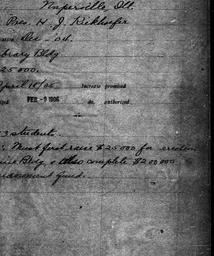 Naperville, Ill.
Pres. H. J. Kiekhoefer
Dec - 04.
brary Bldg
25 000.
April 18/05 Increase promised
FEB -9 1906 do. authorized
3 students.
Must first raise $25000 for erection
Bldg, & also complete $200000
fund.